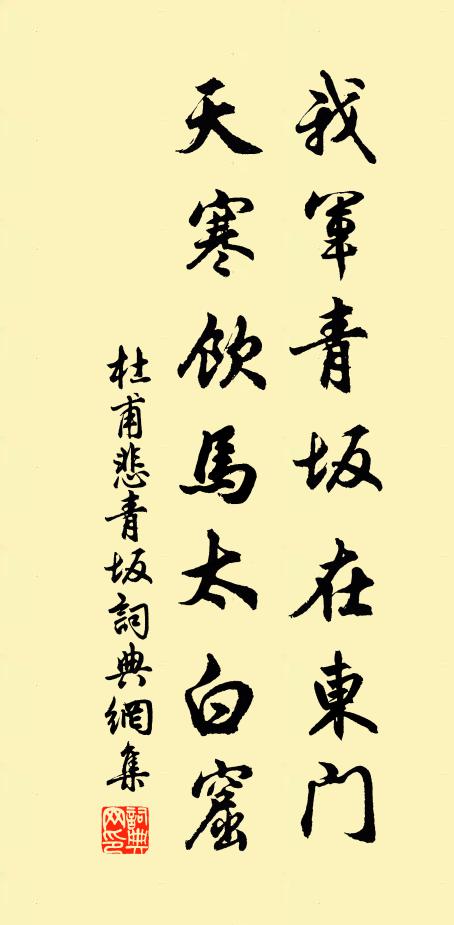 我軍青坂在東門
天寒飲馬太白窟
杜甫悲青坂詞典網集
詞典网印